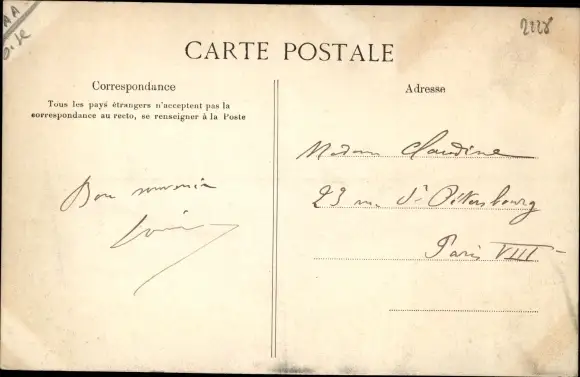 AA
Oise
2228
CARTE POSTALE
Correspondance
Tous les pays étrangers n'acceptent pas la
correspondance au recto, se renseigner à la Poste
Adresse
Madame Claudine
23 rue St Pétersbourg
Paris VIII
Bon souvenir